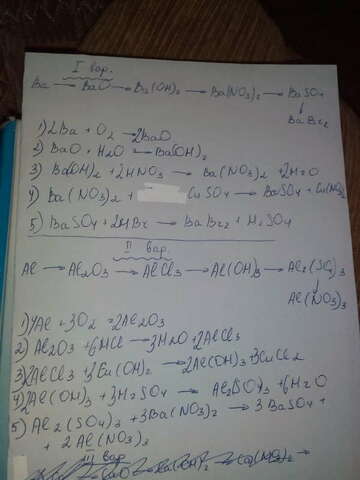 I вар.
Ba → BaO → Ba(OH)2 → Ba(NO3)2 → BaSO4
↓
BaBr2
1) 2Ba + O2 → 2BaO
2) BaO + H2O → Ba(OH)2
3) Ba(OH)2 + 2HNO3 → Ba(NO3)2 + 2H2O
4) Ba(NO3)2 + CuSO4 → BaSO4 + Cu(NO3)2
5) BaSO4 + 2HBr → BaBr2 + H2SO4
II вар.
Al → Al2O3 → AlCl3 → Al(OH)3 → Al2(SO4)3
↓
Al(NO3)3
1) 4Al + 3O2 = 2Al2O3
2) Al2O3 + 6HCl → 3H2O + 2AlCl3
3) 2AlCl3 + 3Cu(OH)2 → 2Al(OH)3 + 3CuCl2
4) 2Al(OH)3 + 3H2SO4 → Al2(SO4)3 + 6H2O
5) Al2(SO4)3 + 3Ba(NO3)2 → 3BaSO4 +
+ 2Al(NO3)3
III вар